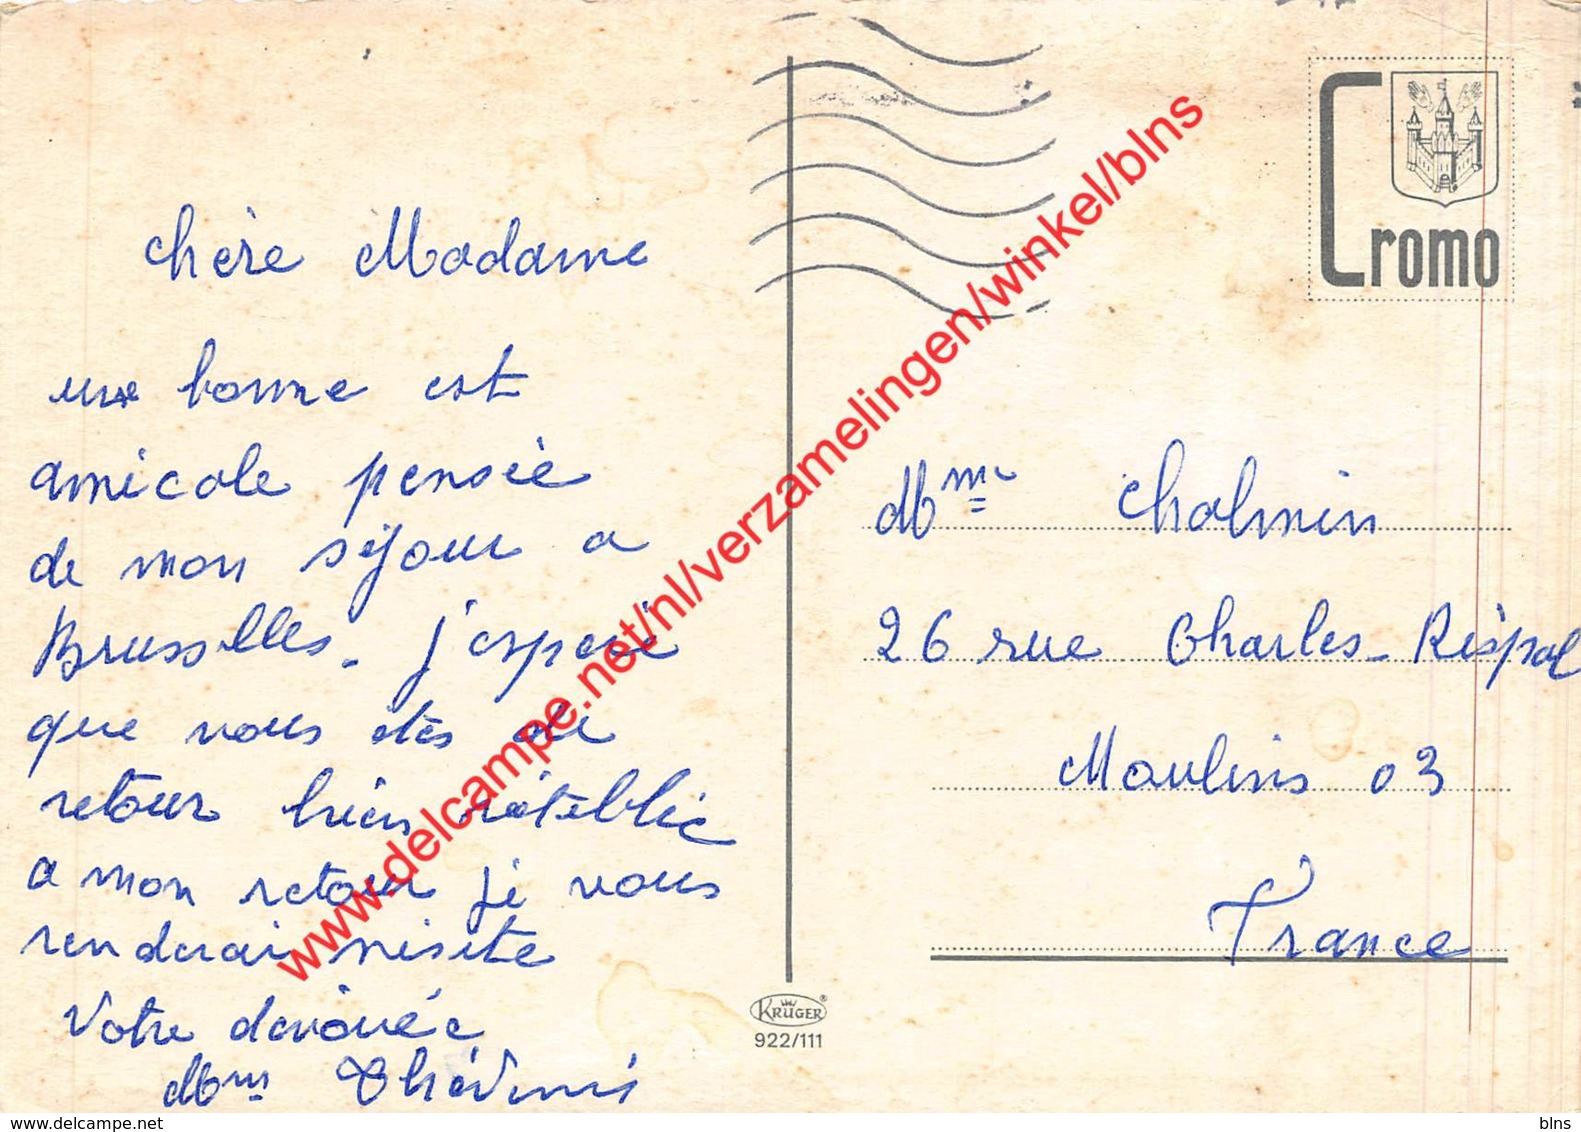 chère Madame
une bonne est
amicale pensée
de mon séjour a
Brusselles. j'esperé
que vous etes de
retour bien rétablic
a mon retour je vous
renderai visite
Votre dévouée
Mme
Cromo
Mme Chalmin
26 rue Charles-Rispal
Moulins 03
France
KRÜGER®
922/111
www.delcampe.net/nl/verzamelingen/winkel/blns
www.delcampe.net
blns